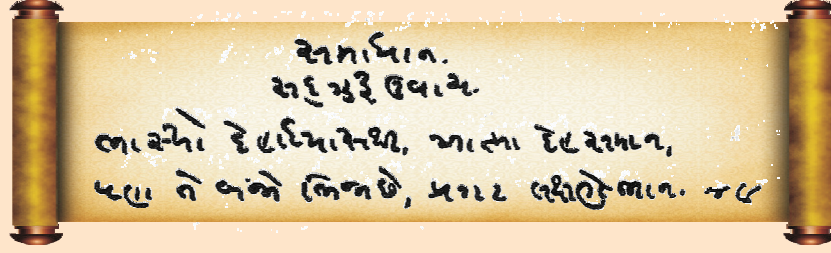 સમાધાન.
સદ્ગુરૂ ઉવાચ.
ભાસ્યો દેહાધ્યાસથી, આત્મા દેહસમાન,
પણ તે બંન્ને ભિન્નછે, પ્રગટ લક્ષણે ભાન. ૪૯